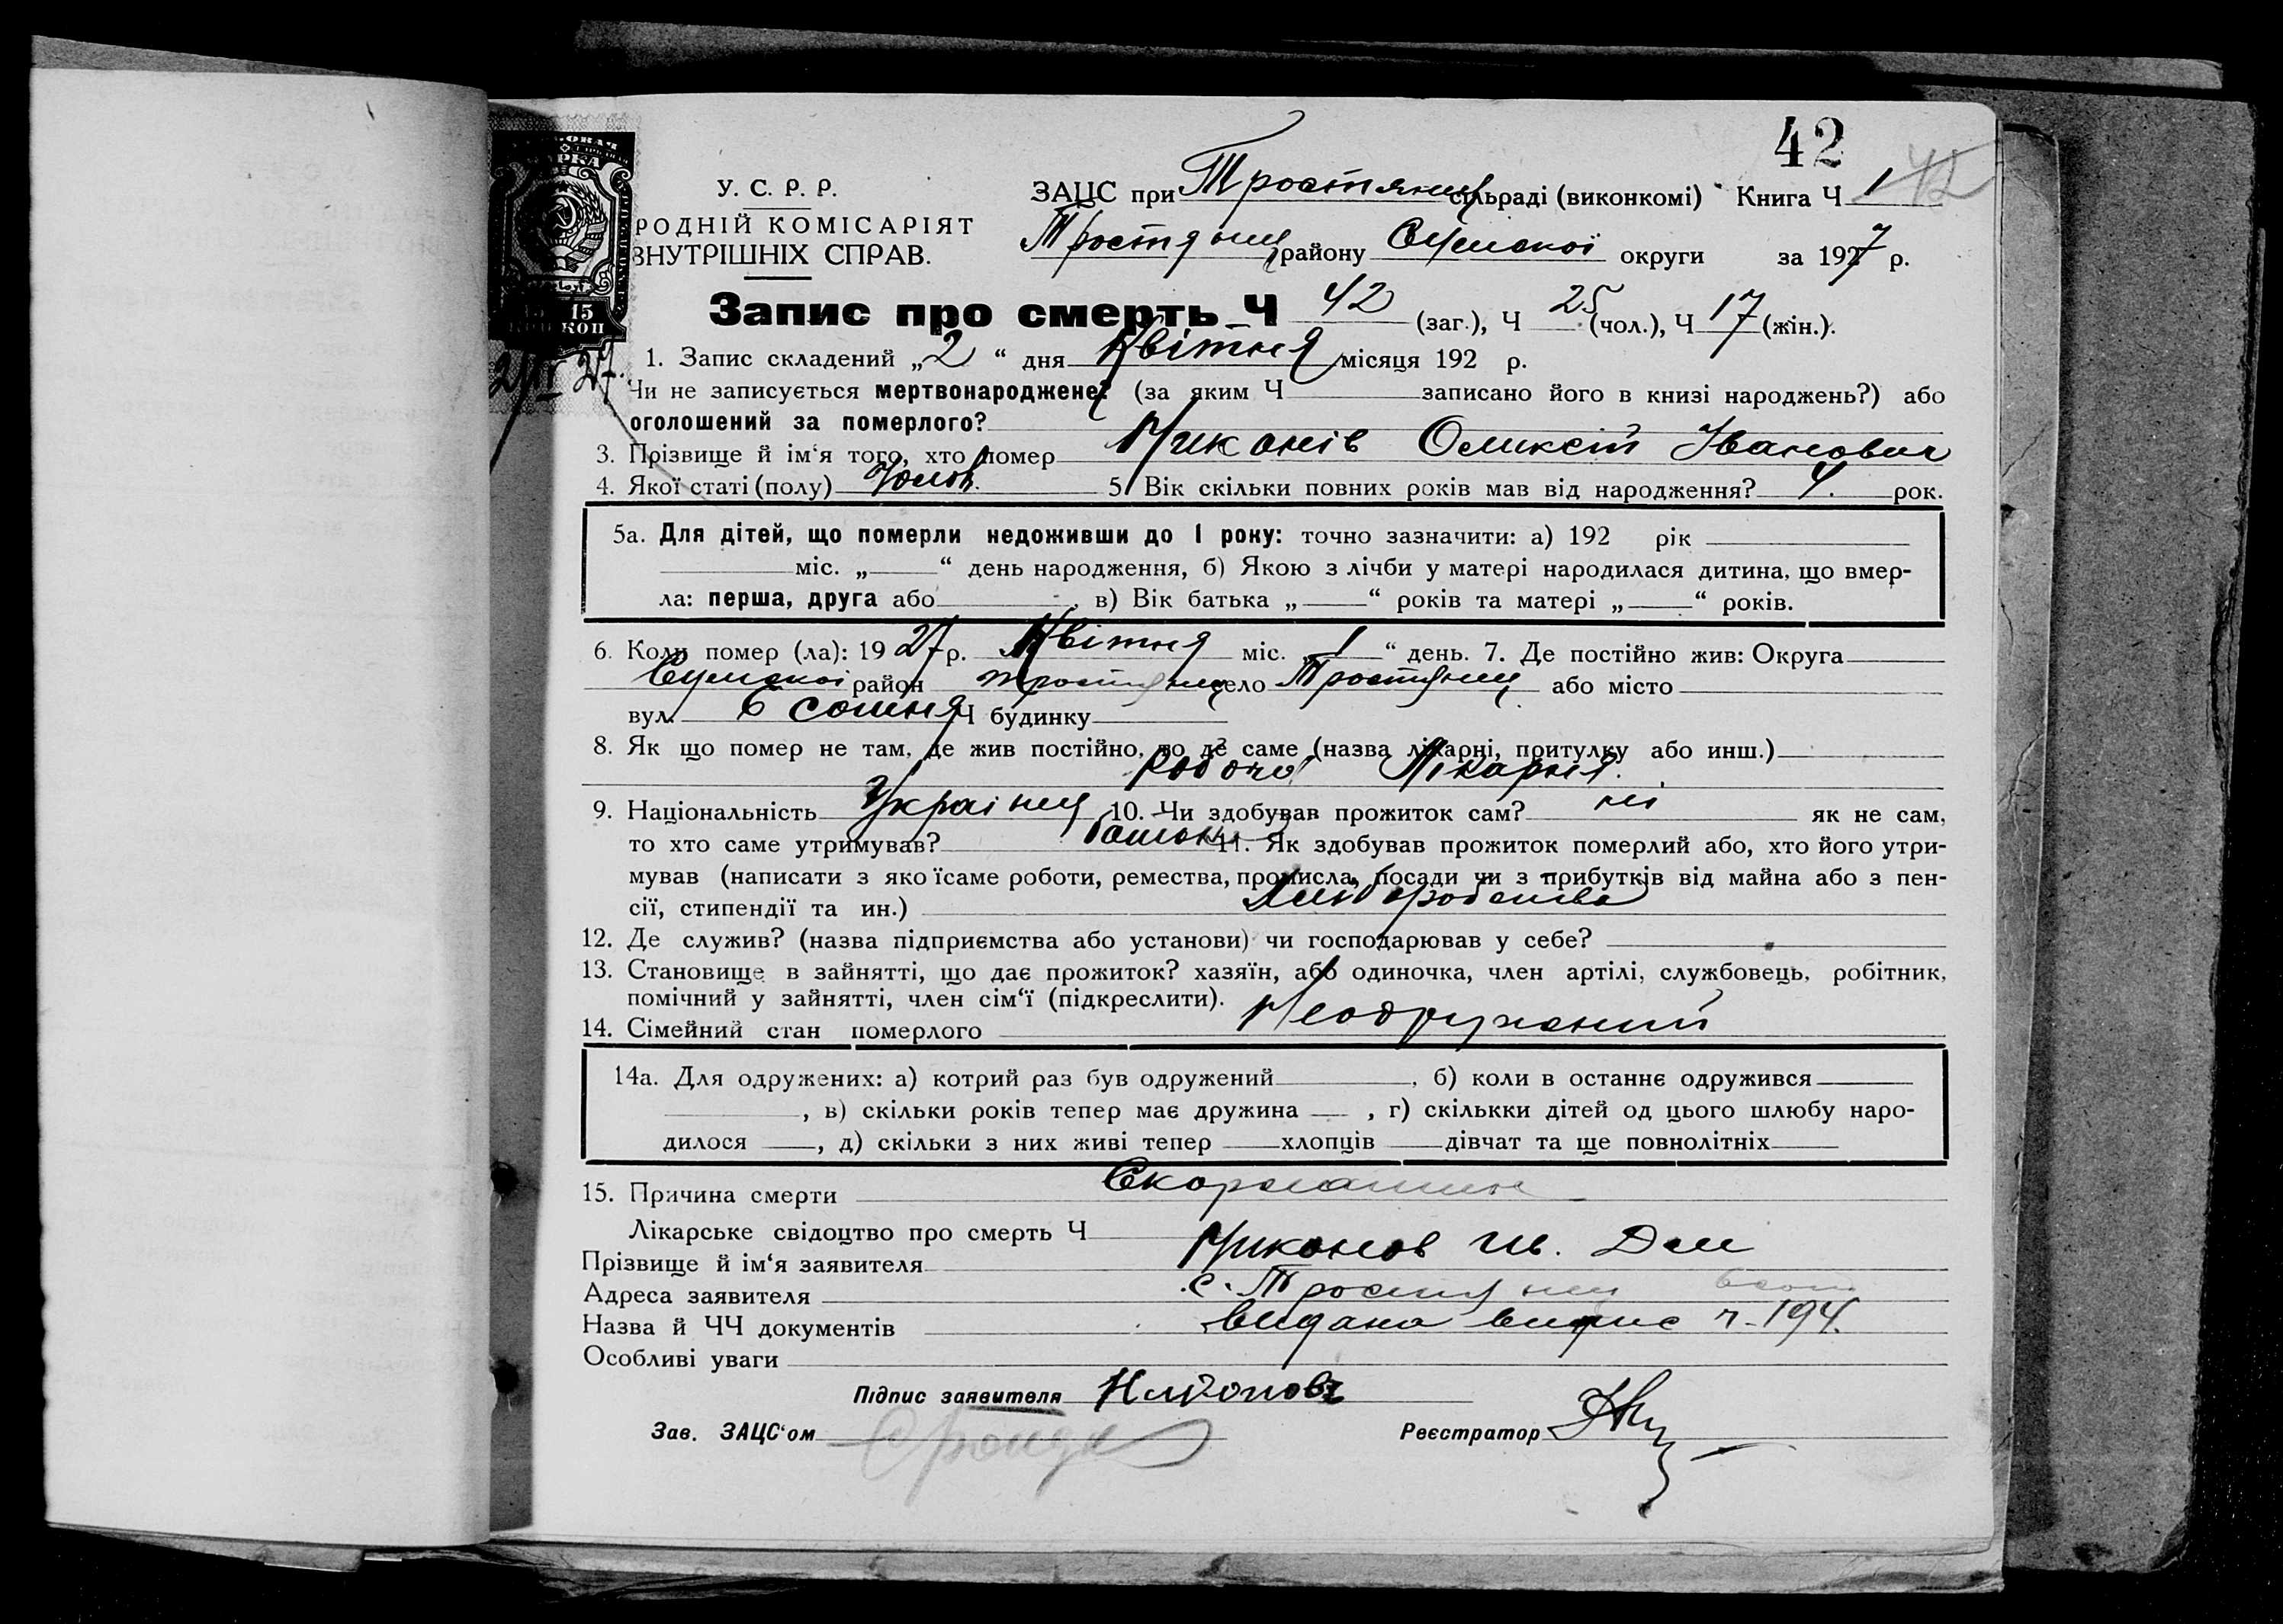 42
42
У. С. Р. Р.
РОДНІЙ КОМІСАРІЯТ
ВНУТРІШНІХ СПРАВ.
МАРКА
15 15
КОП КОП
2/IV 27.
ЗАЦС при Тростянец сільраді (виконкомі) Книга Ч 1
Тростянец району Сумської округи за 1927 р.
Запис про смерть Ч 42 (заг.), Ч 25 (чол.), Ч 17 (жін.).
1. Запис складений „2“ дня Квітня місяця 192 р.
Чи не записується мертвонароджене? (за яким Ч записано його в книзі народжень?) або
оголошений за померлого?
3. Прізвище й ім‘я того, хто помер Никонів Оликсій Іванович
4. Якої статі (полу) Чолов. 5. Вік скільки повних років мав від народження? 4. рок.
5а. Для дітей, що померли недоживши до 1 року: точно зазначити: а) 192 рік
міс. „ “ день народження, б) Якою з лічби у матері народилася дитина, що вмер-
ла: перша, друга або , в) Вік батька „ “ років та матері „ “ років.
6. Коли помер (ла): 1927 р. Квітня міс. 1 “ день. 7. Де постійно жив: Округа
Сумської район Тростянец село Тростянец або місто
вул. 6 сотня Ч будинку
8. Як що помер не там, де жив постійно, то де саме (назва лікарні, притулку або инш.)
Робоча Лікарня.
9. Національність Українец 10. Чи здобував прожиток сам? ні як не сам,
то хто саме утримував? батько 11. Як здобував прожиток померлий або, хто його утри-
мував (написати з якоїсаме роботи, ремества, промисла, посади чи з прибутків від майна або з пен-
сії, стипендії та ин.) Хліборобства
12. Де служив? (назва підприємства або установи) чи господарював у себе?
13. Становище в зайнятті, що дає прожиток? хазяїн, або одиночка, член артілі, службовець, робітник,
помічний у зайнятті, член сім‘ї (підкреслити).
14. Сімейний стан померлого Неодружений
14а. Для одружених: а) котрий раз був одружений , б) коли в останнє одружився
, в) скільки років тепер має дружина , г) скількки дітей од цього шлюбу наро-
дилося , д) скільки з них живі тепер хлопців дівчат та ще повнолітніх
15. Причина смерти Скарлатин
Лікарське свідоцтво про смерть Ч
Прізвище й ім‘я заявителя Никонов Ив. Дем
Адреса заявителя с. Тростянец 6 сот
Назва й ЧЧ документів видана випис ч. 194.
Особливі уваги
Підпис заявителя Никоновъ
Зав. ЗАЦС‘ом
Реєстратор